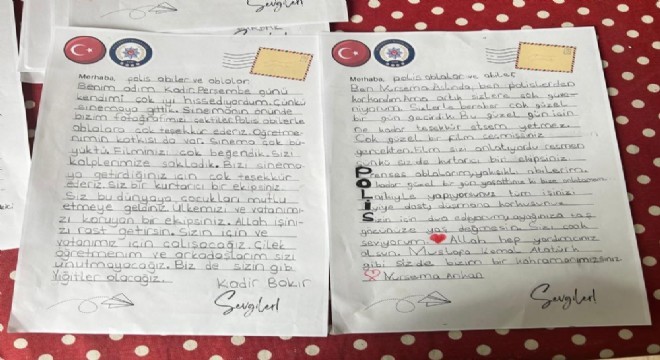 Merhaba, polis abiler ve ablalar
Benim adım Kadir. Perşembe günü
kendimi çok iyi hissediyordum. Çünkü
sinemaya gittik. Sinemanın önünde
bizim fotoğrafımızı çektiler. Polis abilerle
ablalara çok teşekkür ederiz. Öğretme-
nimin katkısı da var. Sinema çok bü-
yüktü. Filminizi çok beğendik. Sizi
kalplerimize sakladık. Bizi sinema-
ya getirdiğiniz için çok teşekkür
ederiz. Siz bir kurtarıcı bir ekipsiniz.
Siz bu dünyaya çocukları mutlu
etmeye geldiniz. Ülkemizi ve vatanımı-
zı koruyan bir ekipsiniz. Allah işini-
zi rast getirsin. Sizin için ve
vatanımız için çalışacağız. Çilek
öğretmenim ve arkadaşlarım sizi
unutmayacağız. Biz de sizin gibi
yiğitler olacağız.
Kadir Bakır
Sevgiler!
Merhaba, polis ablalar ve abiler
Ben Nursema Aslında, ben polislerden
korkardım ama artık sizlere çok güve-
niyorum. Sizlerle beraber çok güzel
bir gün geçirdik. Bu güzel gün için
ne kadar teşekkür etsem yetmez.
Çok güzel bir film seçmişsiniz
gerçekten film sizi anlatıyordu resmen
çünkü siz de kurtarıcı bir ekipsiniz
Prenses ablalarım, yakışıklı abilerim.
O kadar güzel bir gün yaşattınız ki bize
L
İ
S
için dua ediyorum, ayağınıza taş
gözünüze yaş değmesin. Sizi çok
seviyorum. Allah hep yardımcınız
olsun. Mustafa Kemal Atatürk
gibi siz de bizim bir kahramanımızsınız
Nursema Arıkan
Sevgiler!